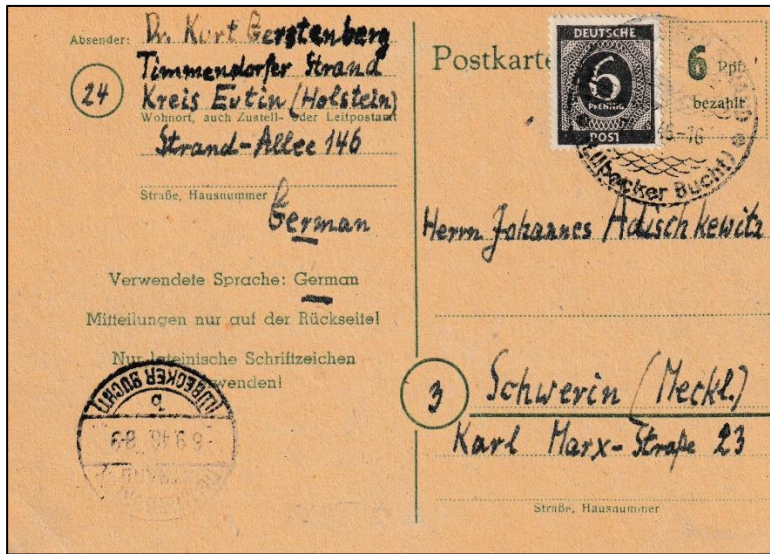 Absender: Dr. Kurt Gerstenberg
Timmendorfer Strand
24 Kreis Eutin (Holstein)
Wohnort, auch Zustell- oder Leitpostamt
Strand-Allee 146
Straße, Hausnummer
German
Verwendete Sprache: German
Mitteilungen nur auf der Rückseite!
Nur lateinische Schriftzeichen
Postkarte
6 Rpf.
bezahlt
DEUTSCHE
6
PFENNIG
POST
(Lübecker Bucht)
Herrn Johannes Adischkewitz
3 Schwerin (Meckl.)
Karl Marx-Straße 23
Straße, Hausnummer
(LÜBECKER BUCHT)
b